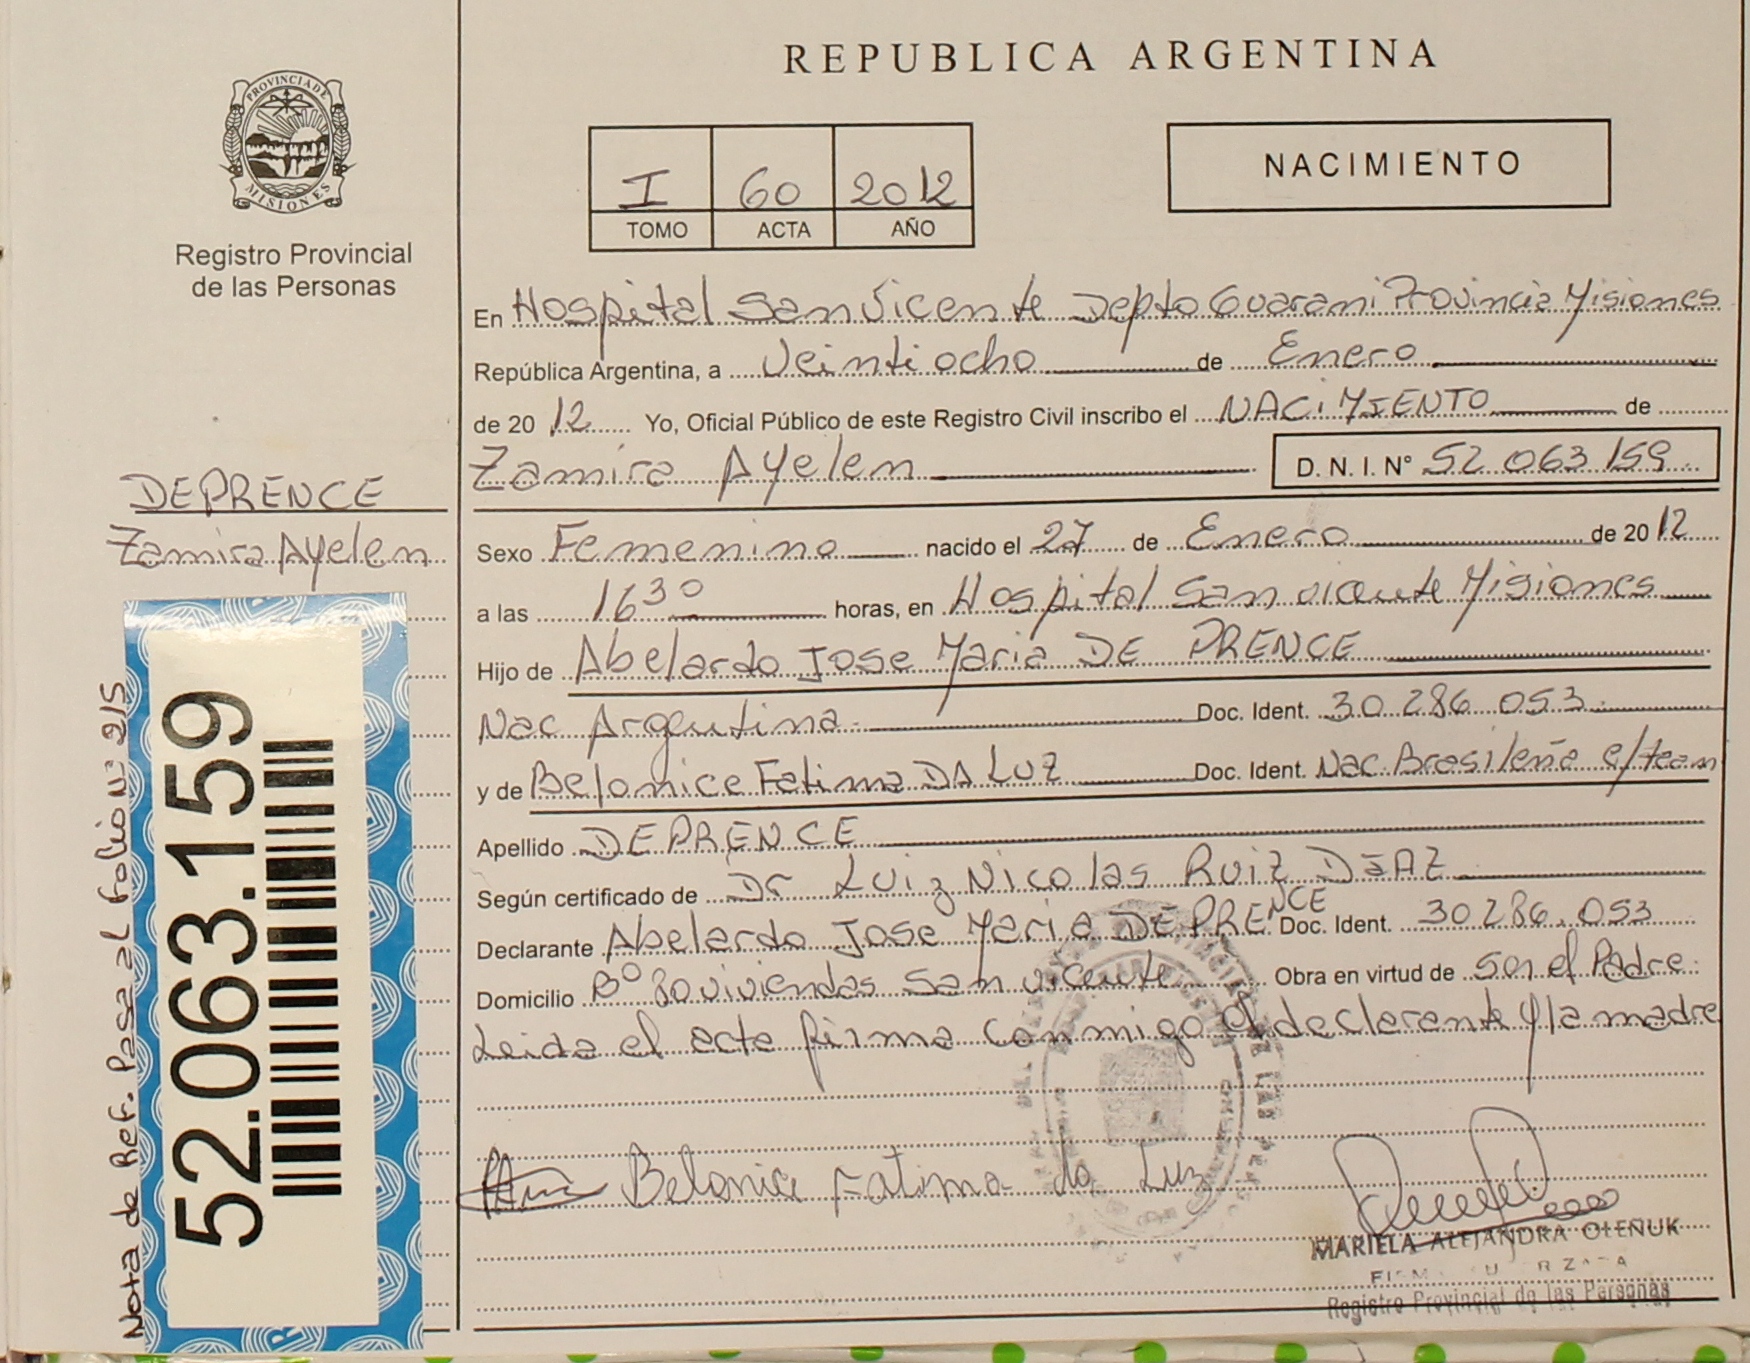 PROVINCIA DE
MISIONES
Registro Provincial
de las Personas
DEPRENCE
Zamira Ayelen
Nota de Ref. Pasa al folio Nº 215
52.063.159
REPUBLICA ARGENTINA
I 60 2012
TOMO ACTA AÑO
NACIMIENTO
En Hospital San Vicente Depto Guarani Provincia Misiones
República Argentina, a Veintiocho de Enero
de 2012 Yo, Oficial Público de este Registro Civil inscribo el NACIMIENTO de
Zamira Ayelen D.N.I. Nº 52 063 159
Sexo Femenino nacido el 27 de Enero de 2012
a las 16 30 horas, en Hospital San vicente Misiones
Hijo de Abelardo Jose Maria DE PRENCE
Nac Argentina Doc. Ident. 30 286 053
y de Belonice Fatima DA LUZ Doc. Ident. Nac Brasileña
Apellido DEPRENCE
Según certificado de Dr Luiz Nicolas Ruiz DIAZ
Declarante Abelardo Jose Maria DEPRENCE Doc. Ident. 30286.053
Domicilio Bº 80 viviendas San vicente Obra en virtud de ser el Padre
Leida el acta firma conmigo el declarante y la madre
Belonice Fatima da Luz
MARIELA ALEJANDRA OLEÑUK
Registro Provincial de las Personas